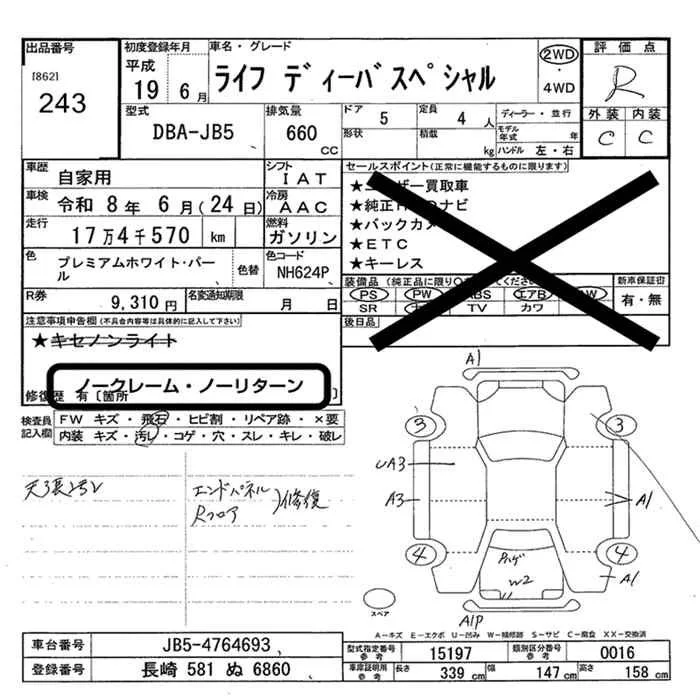 出品番号
[862]
243
初度登録年月
平成
19 6 月
車名・グレード
ライフ ディーバスペシャル
2WD
4WD
評価点
R
外装 内装
C C
型式
DBA-JB5
排気量
660
CC
ドア
5
定員
4 人
形状
積載
kg
ディーラー・並行
モデル年式 年
ハンドル 左・右
車歴
自家用
シフト
IAT
車検
令和 8 年 6 月 (24 日)
冷房
AAC
走行
17 万 4 千 570 km
燃料
ガソリン
色
プレミアムホワイト・パール
色替
色コード
NH624P
R券
9,310 円
名変通知期限
月 日
セールスポイント(正常に機能するものに限ります)
★ユーザー買取車
★純正 ナビ
★バックカメ
★ETC
★キーレス
装備品(純正品に限り
新車保証書
PS PW ABS エアB W
有・無
SR TV カワ
後日品
注意事項申告欄(不具合内容等は具体的に記入して下さい)
★キセノンライト
ノークレーム・ノーリターン
修復歴 有 [箇所 ]
検査員記入欄
FW キズ・飛石・ヒビ割・リペア跡・×要
内装 キズ・汚レ・コゲ・穴・スレ・キレ・破レ
天張汚レ
エンドパネル
Rフロア
修復
A1
3 3
UA3
A3 A1
4 4
A1
W2
A1P
スペア
A-キズ E-エクボ U-凹み W-補修跡 S-サビ C-腐食 XX-交換済
車台番号
JB5-4764693
登録番号
長崎 581 ぬ 6860
型式指定番号
参考
15197
類別区分番号
参考
0016
車庫証明用
参考
長さ
339 cm
幅
147 cm
高さ
158 cm